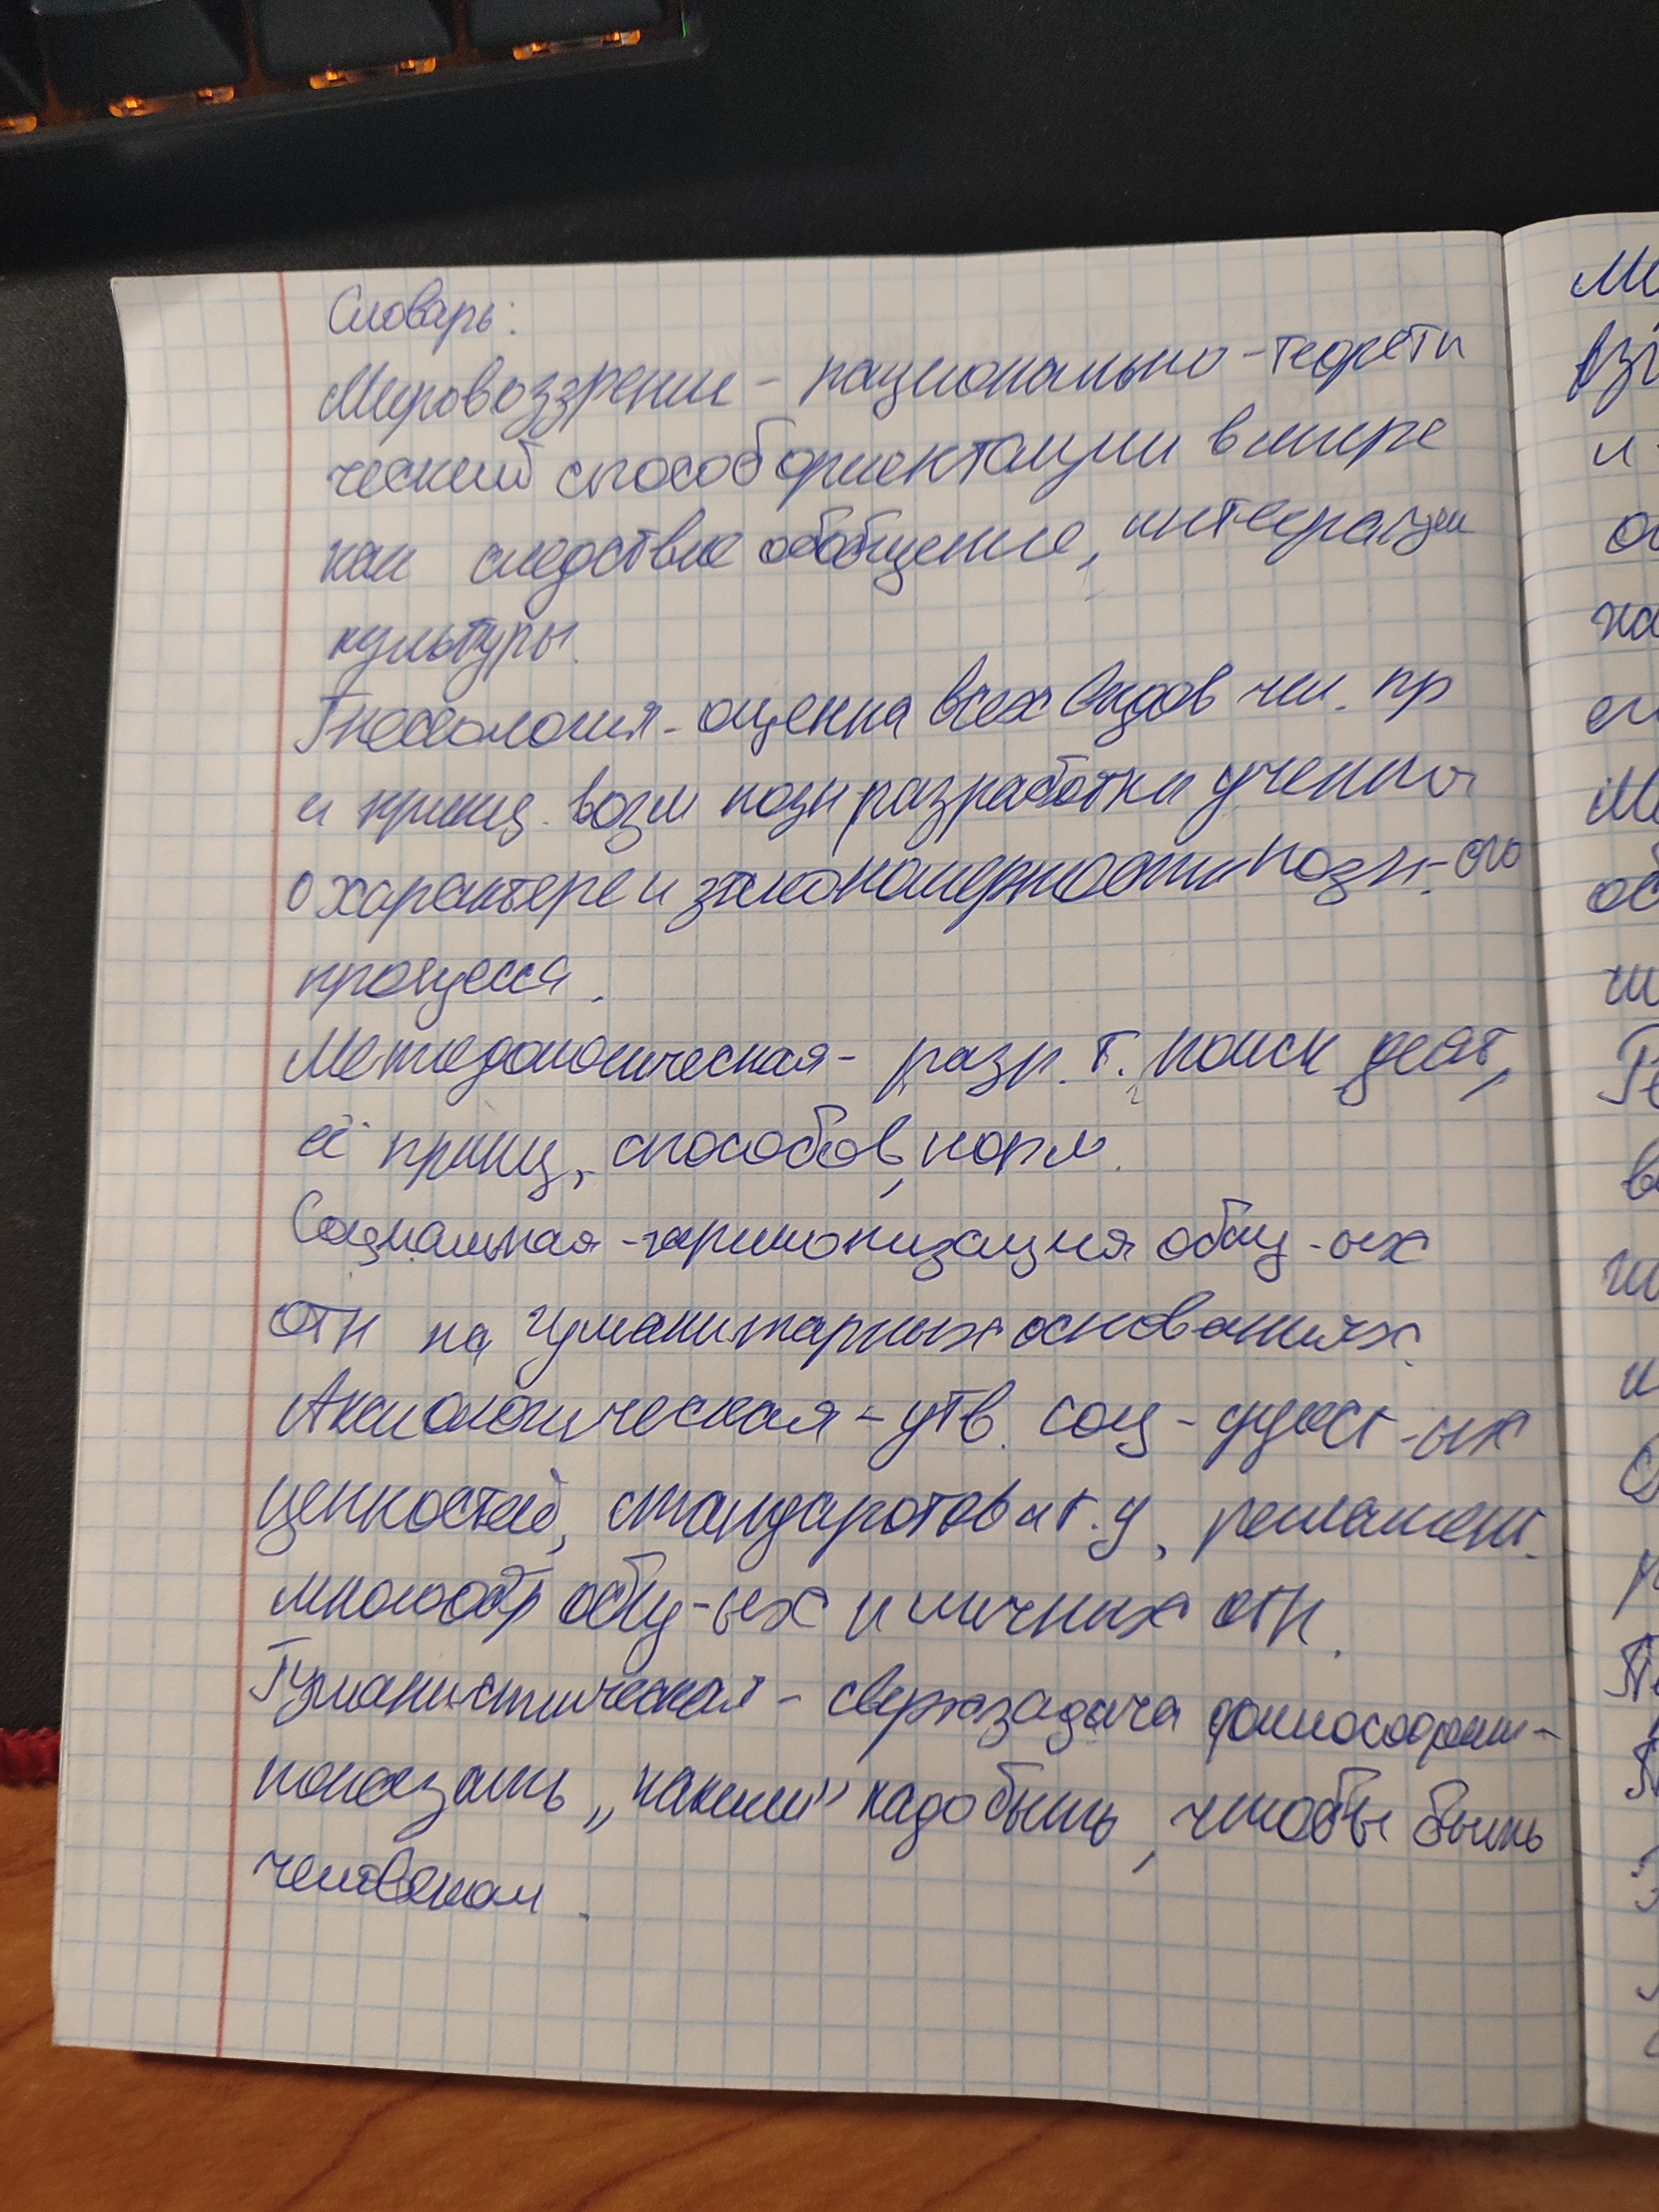 Словарь:
Мировоззрение – рационально-теорети
ческий способ ориентации в мире
как следствие обобщение, интеграции
культуры.
Гносеология - оценка всех видов чел. пр
и принц. возм позн разработки учения
о характере и закономерности позн-ого
процесса.
Методологическая - разр. т. поиск деят,
её принц, способов, норм.
Социальная - гармонизация общ-ых
отн на гуманитарных основаниях.
Аксиологическая - утв. соц-
ценностей, стандартов и т.д, регламент.
многообр общ-ых и личных отн.
Гуманистическая - сверхзадача философии -
показать „каким" надо быть, чтобы быть
человеком.
Ме
и
на